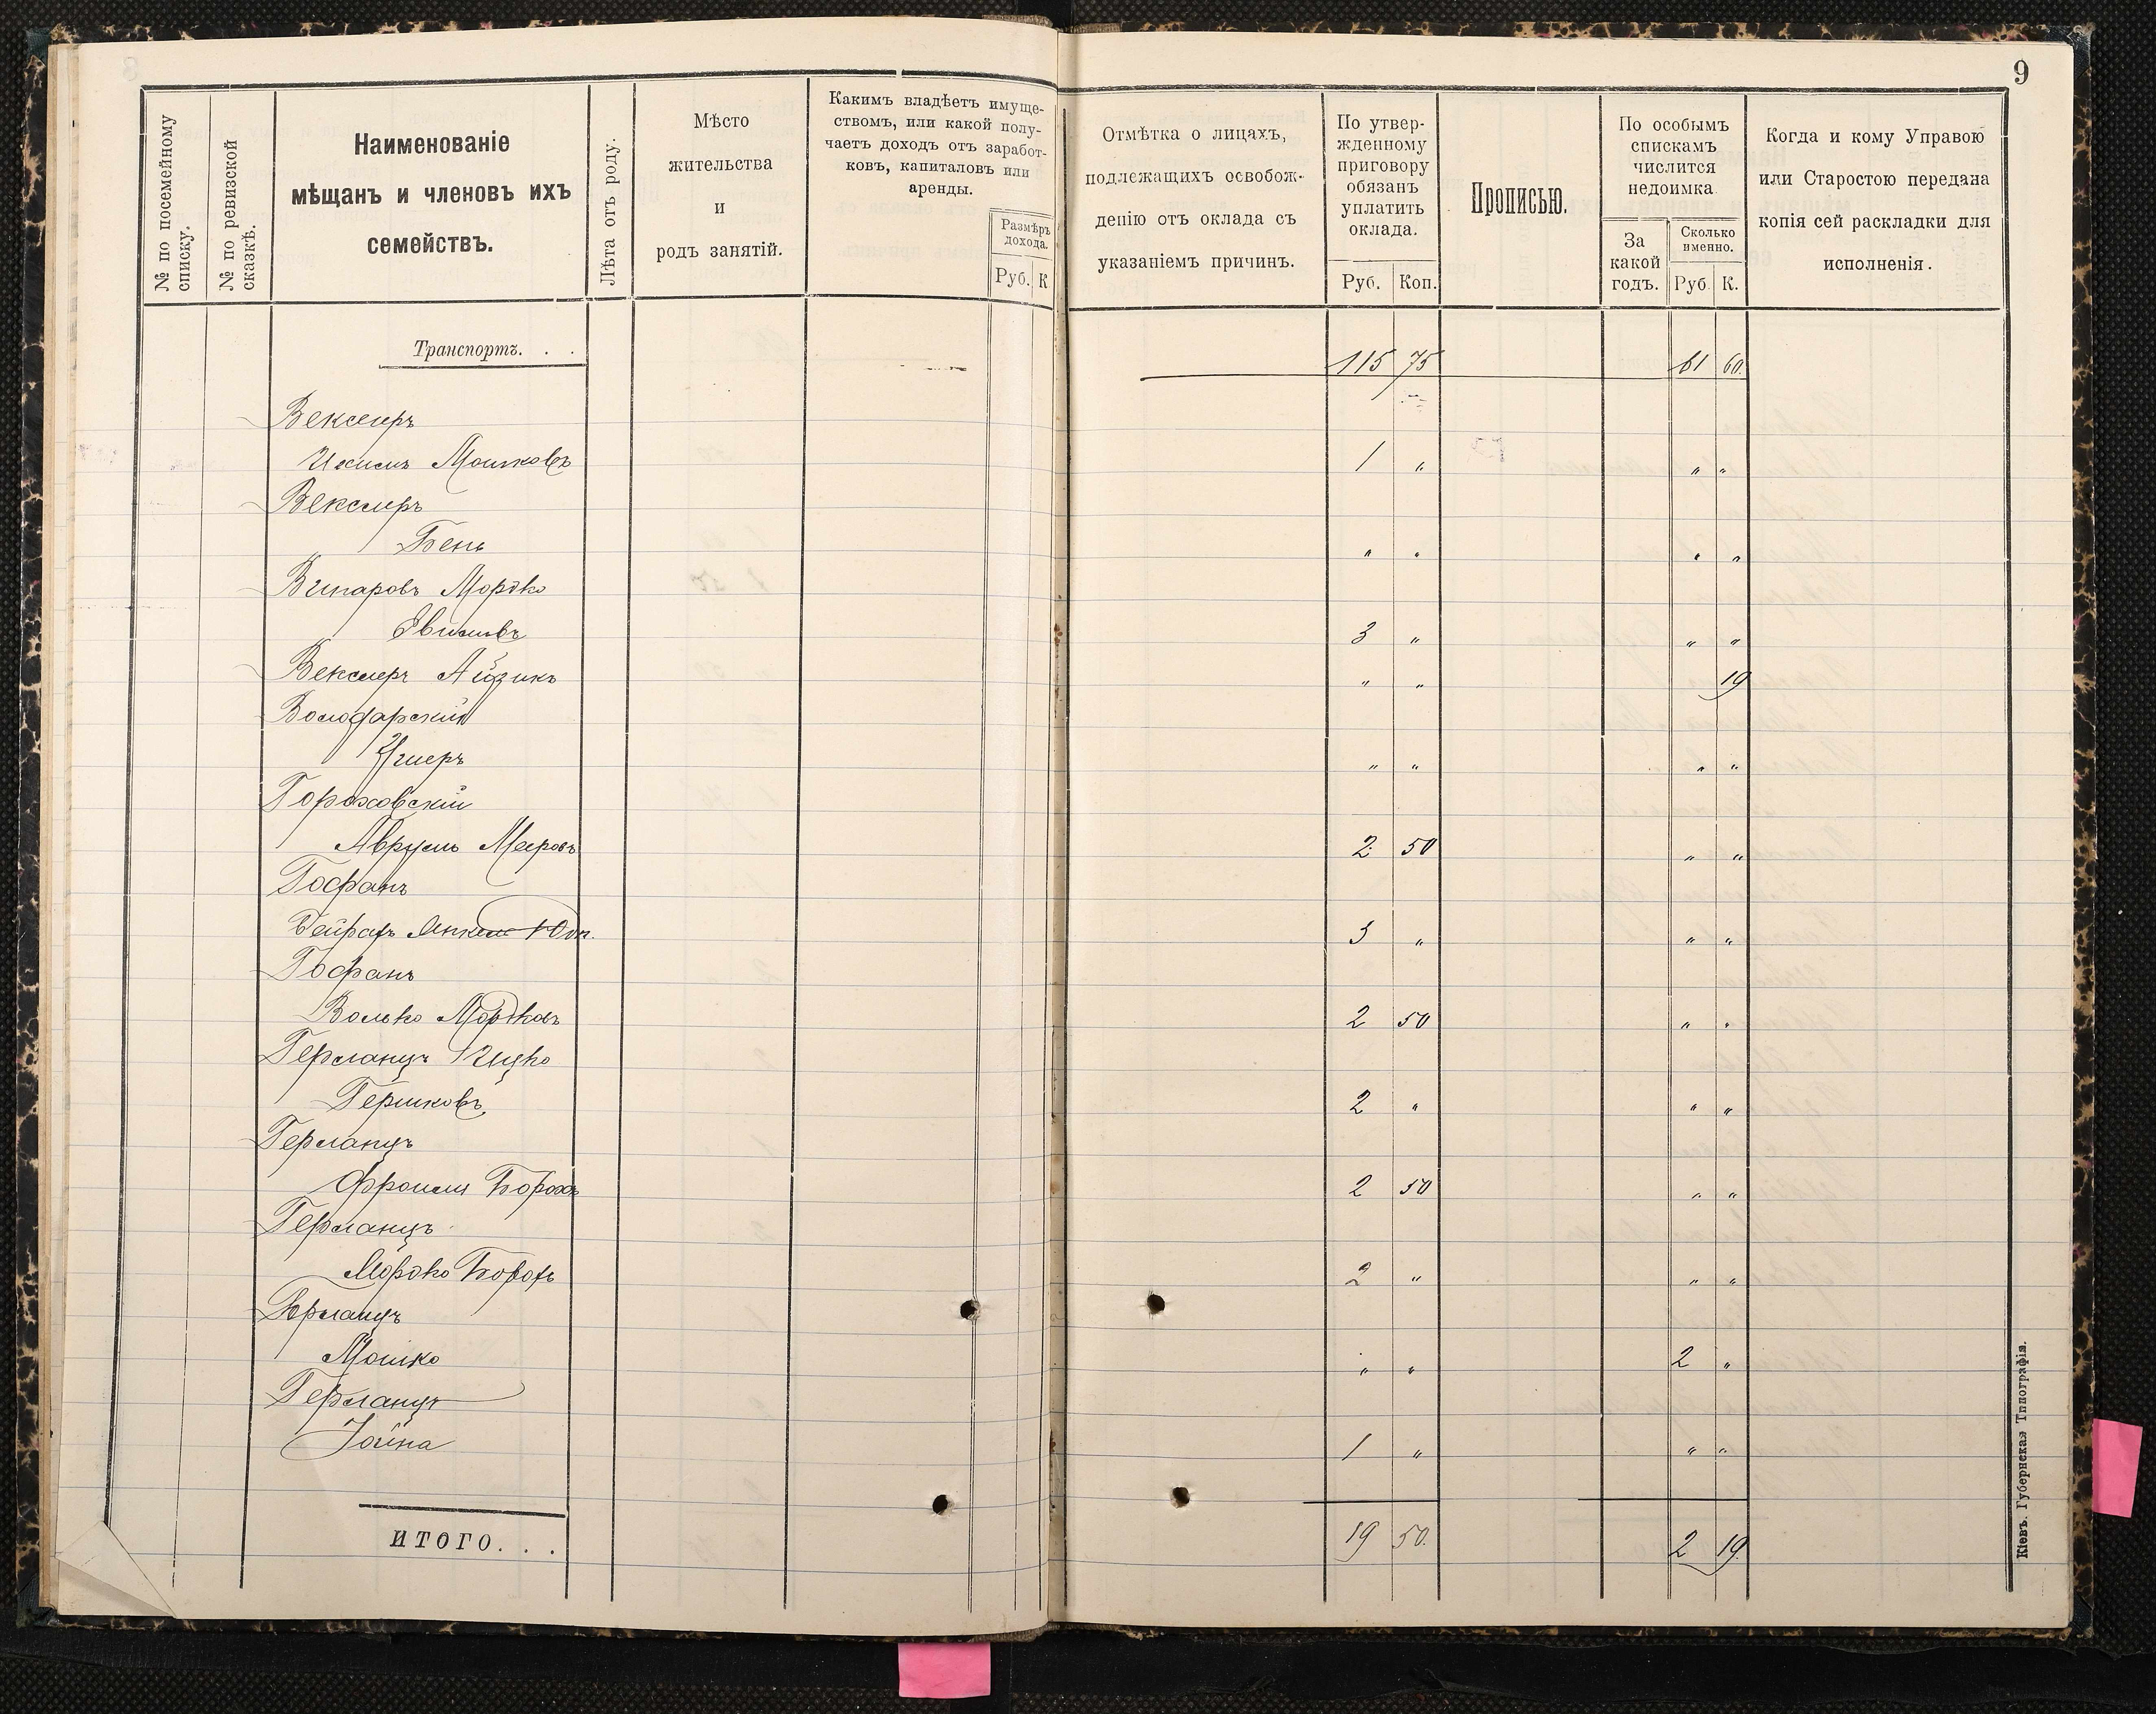 9
№ по посемейному списку.
№ по ревизской сказкѣ.
Наименованіе
мѣщанъ и членовъ ихъ
семействъ.
Лѣта отъ роду.
Мѣсто
жительства
и
родъ занятій.
Какимъ владѣетъ имуще-
ствомъ, или какой полу-
чаетъ доходъ отъ заработ-
ковъ, капиталовъ или
аренды.
Размѣръ
дохода.
Руб. К
Отмѣтка о лицахъ,
подлежащихъ освобож-
денію отъ оклада съ
указаніемъ причинъ.
По утвер-
жденному
приговору
обязанъ
уплатить
оклада.
Руб. Коп.
Прописью.
По особымъ
спискамъ
числится
недоимка
За
какой
годъ.
Сколько
именно.
Руб. К.
Когда и кому Управою
или Старостою передана
копія сей раскладки для
исполненія.
Транспортъ. . . 115 75 61 60.
Векслеръ
Мошковъ 1 " " "
Векслеръ
Бень " " " "
Мордко
3 " " "
Векслеръ Айзикъ " " 19
Володарскій
" " " "
Гороховскій
Аврумъ Мееровъ 2 50 " "
Гофранъ
3 " " "
Гофранъ
Волько Мордковъ 2 50 " "
Герланцъ Ицко
Гершковъ 2 " " "
Герланцъ
Фроимъ Борохъ 2 50 " "
Герланцъ
Мордко Борохъ 2 " " "
Герланцъ
Мошко " " 2 "
Герланцъ
Іойна 1 " " "
ИТОГО. . . 19 50. 2 19.
Кіевъ. Губернская Типографія.